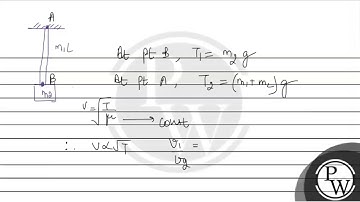 A
m₁L
B
m₂
At pt B, T₁ = m₂g
At pt A, T₂ = (m₁+m₂)g
v = √(T/μ) → const
∴ v ∝ √T v₁/v₂ =
P
W
PW